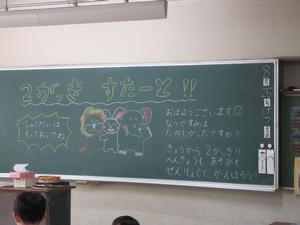 2がっき すたーと!!
しゅくだいは
もっておいてね!
おはようございます
なつやすみは
たのしかったですか?
きょうから2がっき!!
べんきょうも あそびも
ぜんりょくで がんばろう!
8
25